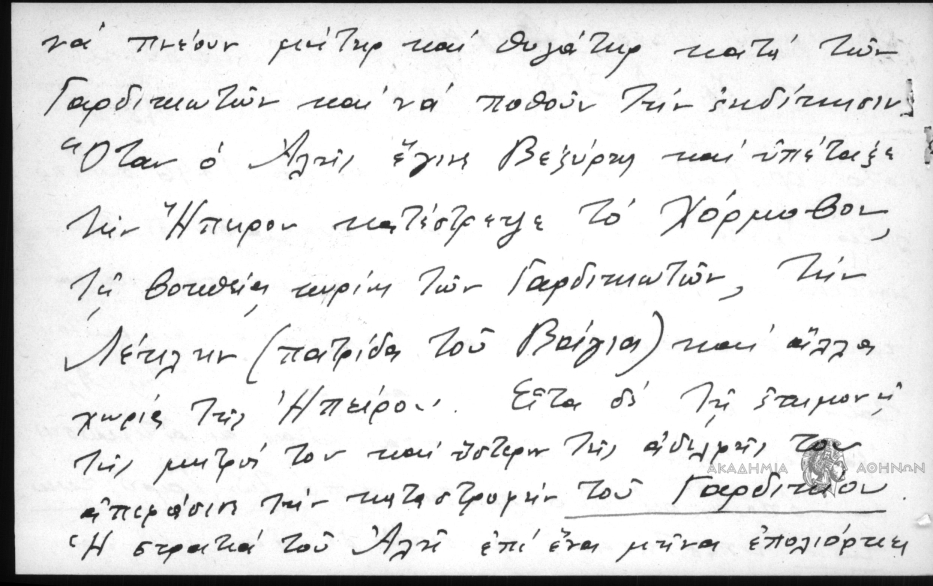 νά πνέουν μήτηρ καί θυγάτηρ κατά τῶν
Γαρδικιωτῶν καί νά ποθοῦν τήν ἐκδίκησιν.
Ὅταν ὁ Ἀλῆς ἔγινε Βεζύρης καί ὑπέταξε
τήν Ἤπειρον κατέστρεψε τό Χόρμοβον,
τῇ βοηθείᾳ κυρίως τῶν Γαρδικιωτῶν, τήν
Λέκλην (πατρίδα τοῦ Βάγια) καί ἄλλα
χωρία τῆς Ἠπείρου. Εἶτα δέ τῇ ἐπιμονῇ
τῆς μητρός του καί ὕστερον τῆς ἀδελφῆς του
ἀπεφάσισε τήν καταστροφήν τοῦ Γαρδικίου.
Ἡ στρατιά τοῦ Ἀλῆ ἐπί ἕνα μῆνα ἐπολιόρκει
ΑΚΑΔΗΜΙΑ ΑΘΗΝΩΝ